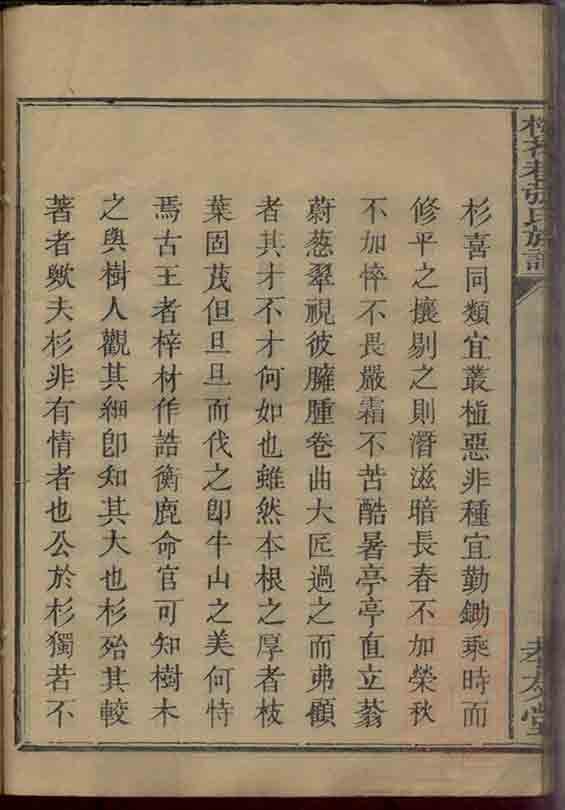 杉喜同類宜叢植惡非種宜勤鋤乘時而
修平之攘剔之則潛滋暗長春不加榮秋
不加悴不畏嚴霜不苦酷暑亭亭直立蓊
蔚葱翠視彼臃腫卷曲大匠過之而弗顧
者其才不才何如也雖然本根之厚者枝
葉固茂但旦旦而伐之卽牛山之美何恃
焉古王者梓材作誥衡鹿命官可知樹木
之與樹人觀其細卽知其大也杉殆其較
著者歟夫杉非有情者也公於杉獨若不
張氏族譜
堂